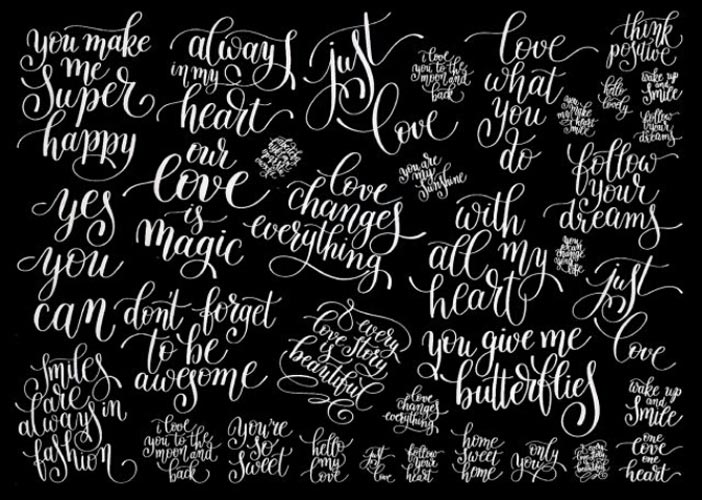 you make
me
super
happy
always
in my
heart
just
love
i love
you to the
moon and
back
love
what
you
do
think
positive
hello
lovely
wake up
and
smile
you
make
heart
smile
follow
your
dreams
our
love
is
magic
love
changes
everything
you are
my
sunshine
follow
your
dreams
yes
you
can
with
all my
heart
you
can
change
your
life
just
love
don't forget
to be
awesome
every
love story
is
beautiful
you give me
butterflies
smiles
are
always in
fashion
love
changes
everything
wake up
and
smile
i love
you to the
moon and
back
you're
so
sweet
hello
my
love
just
love
follow
your
heart
home
sweet
home
only
you
one
love
one
heart